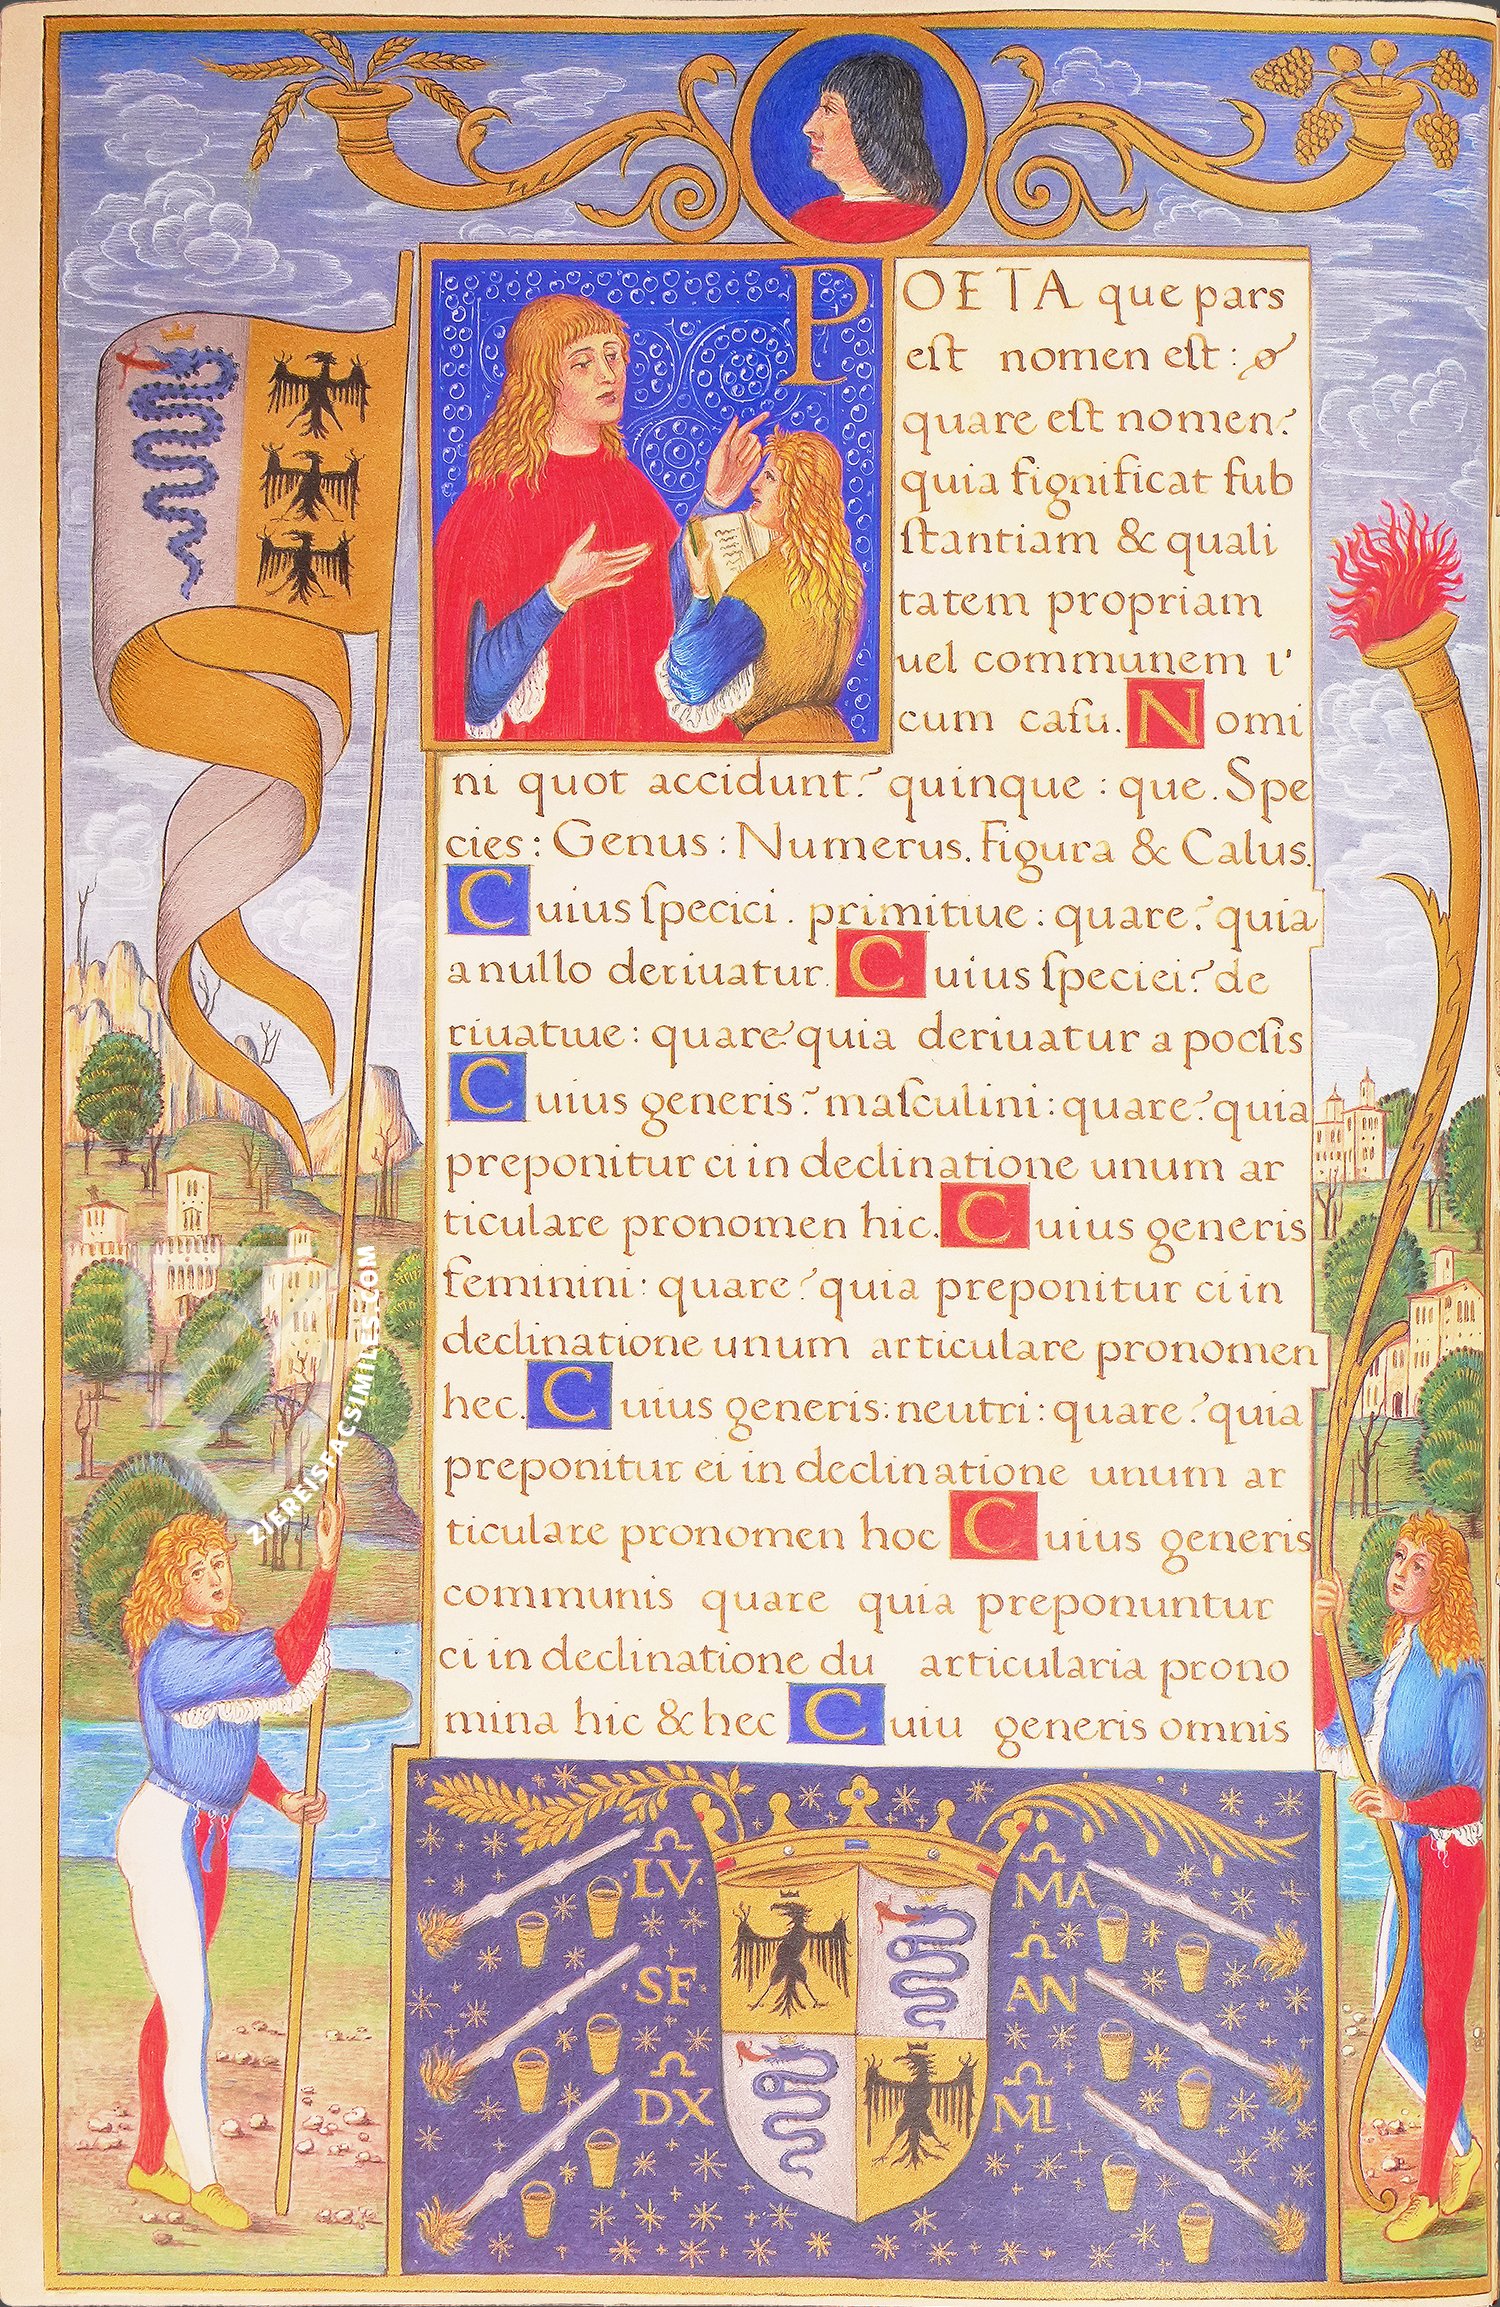 POETA que pars
est nomen est:
quare est nomen?
quia significat sub
stantiam & quali
tatem propriam
uel communem
cum casu. Nomi
ni quot accidunt? quinque: que. Spe
cies: Genus: Numerus. Figura & Casus.
Cuius speciei. primitiue: quare? quia
a nullo deriuatur. Cuius speciei? de
riuatiue: quare? quia deriuatur a poesis
Cuius generis? masculini: quare? quia
preponitur ei in declinatione unum ar
ticulare pronomen hic. Cuius generis
feminini: quare? quia preponitur ei in
declinatione unum articulare pronomen
hec. Cuius generis: neutri: quare? quia
preponitur ei in declinatione unum ar
ticulare pronomen hoc Cuius generis
communis quare quia preponuntur
ei in declinatione du articularia prono
mina hic & hec Cuiu generis omnis
·LV· MA
·SF· AN
DX MI
ZIEREISFACSIMILES.COM